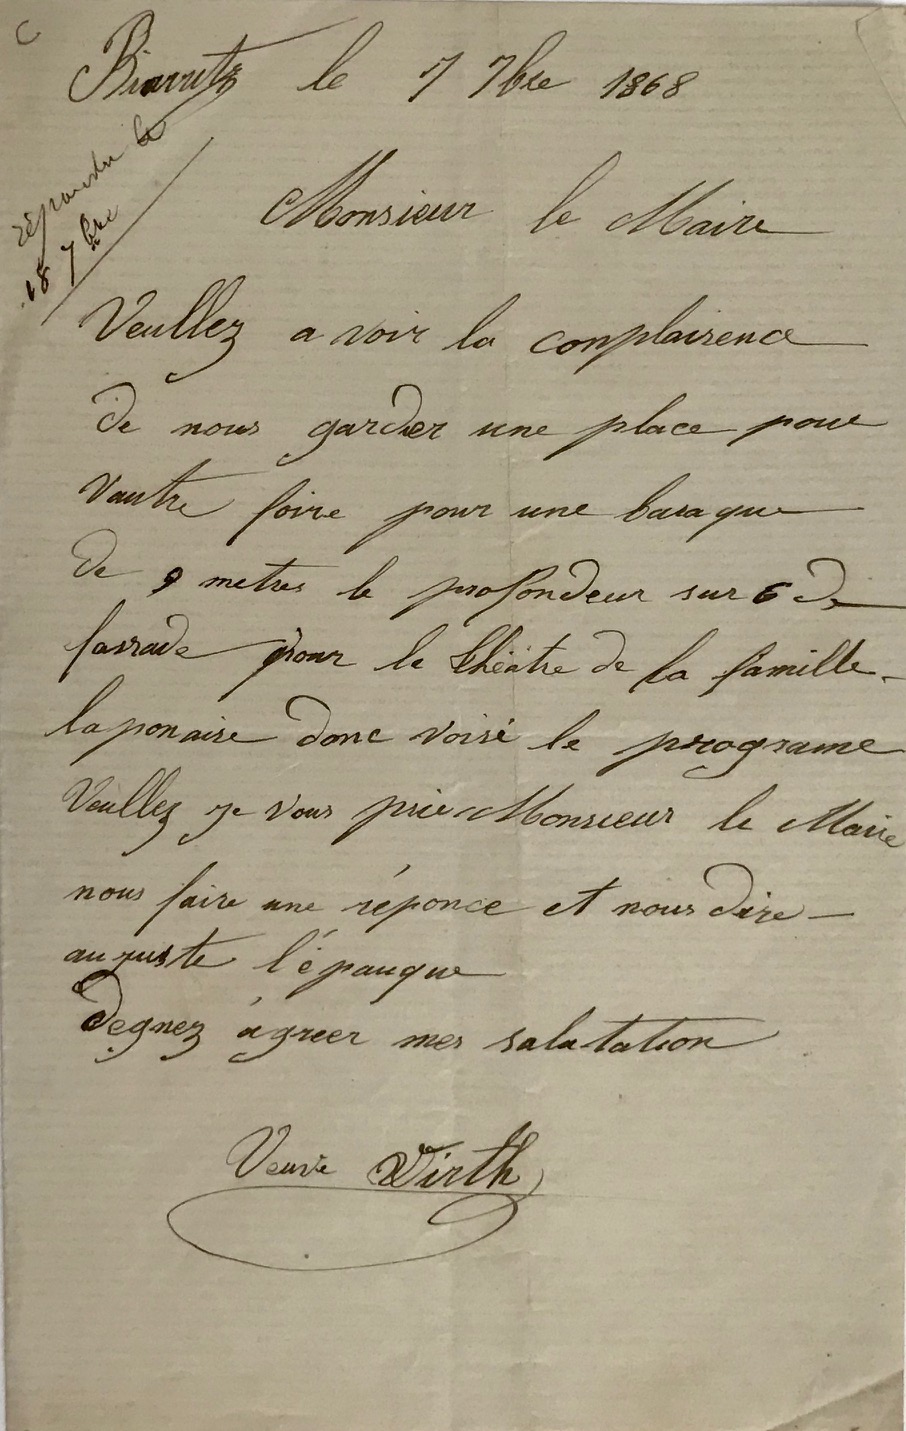 Biarritz le 17 7bre 1868
répondu le
18 7bre
Monsieur le Maire
Veullez a voir la conplaisence
de nous garder une place pour
vautre foire pour une baraque
de 9 metres le profondeur sur 6 de
fassade pour le théâtre de la famille
laponaise donc voisé le programe
Veullez je vous prie Monsieur le Maire
nous faire une réponce et nous dire
au juste l'épauque
degnez ágreer mes salutation
Veuve Virth